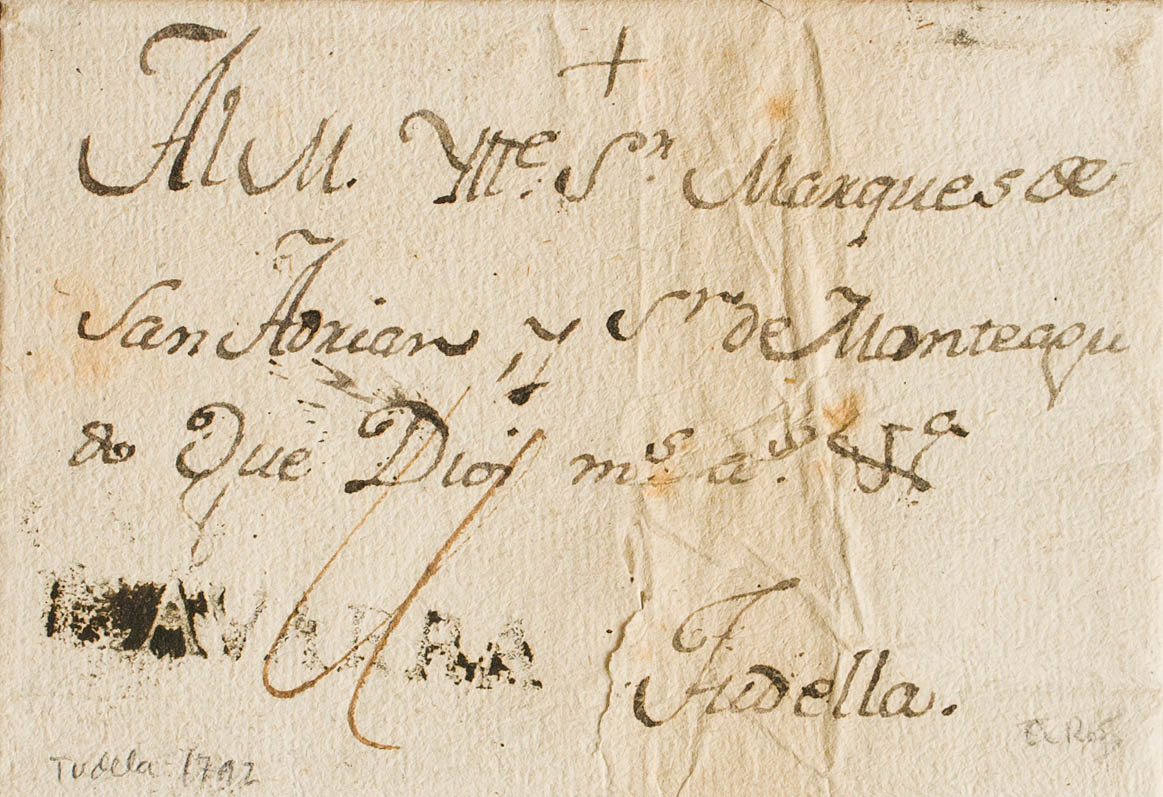 +
Al M. Ytte. Sr. Marques de
San Adrian, y Sr de Monteagu
do Que Dios ms. as.
NAVARRA
Tudella.
Tudela 1792